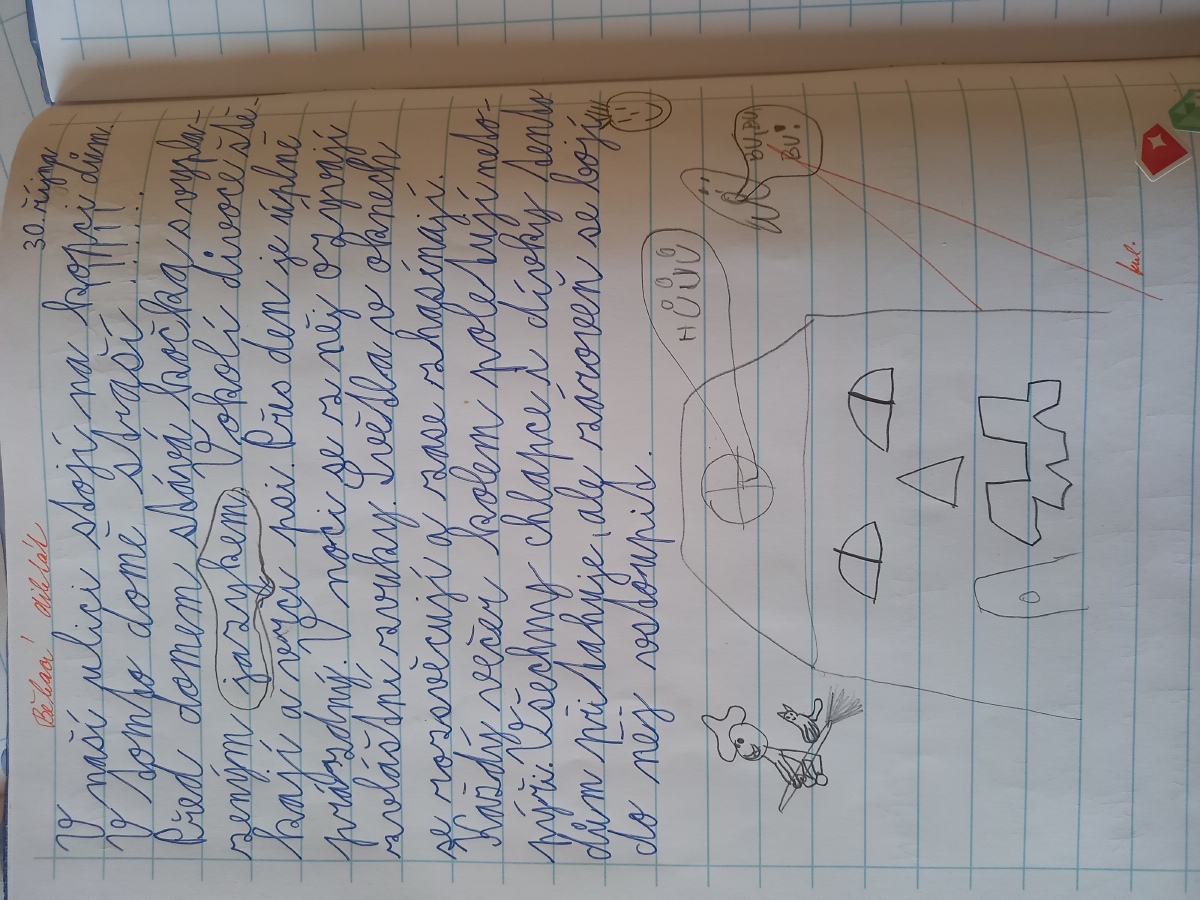 30. října
Běhací diktát
V naší ulici stojí na kopci dům.
V tomto domě straší !!!!
Před domem stává kočka s vypla-
zeným jazykem. V okolí divoce ště-
kají a vrčí psi. Přes den je úplně
prázdný. V noci se z něj ozývají
zvláštní zvuky. Světla v oknech
se rozsvěcují a zase zhasínají.
Každý večer kolem poletují neto-
pýři. Všechny chlapce i dívky tento
dům přitahuje, ale zároveň se bojí
do něj vstoupit.
HŮŮŮŮ
BU, BU
BU!